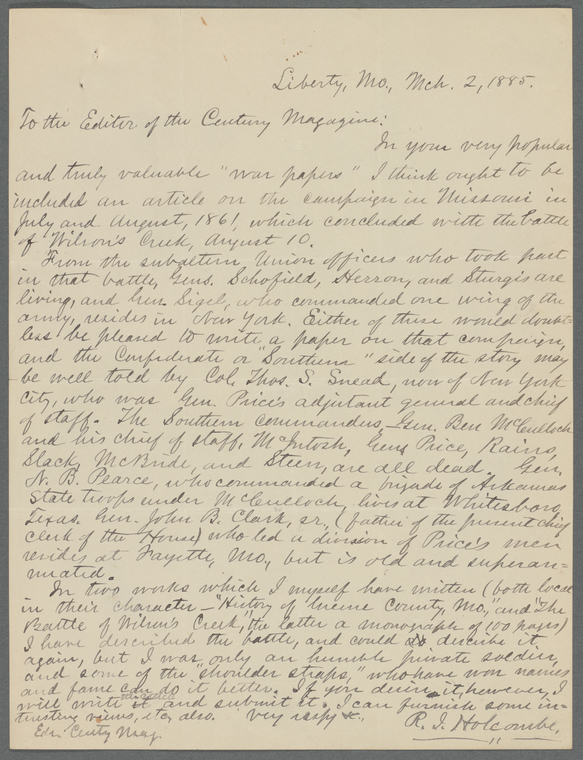 Liberty, Mo., Mch. 2, 1885.
To the Editor of the Century Magazine:
In your very popular
and truly valuable "war papers" I think ought to be
included an article on the campaign in Missouri in
July and August, 1861, which concluded with the battle
of Wilson's Creek, August 10.
From the subaltern Union officers who took part
in that battle, Gens. Schofield, Herron, and Sturgis are
living, and Gen. Sigel, who commanded one wing of the
army, resides in New York. Either of these would doubt-
less be pleased to write a paper on that campaign,
and the Confederate or "Southern" side of the story may
be well told by Col. Thos. S. Snead, now of New York
City, who was Gen. Price's adjutant general and chief
of staff. The Southern commanders—Gen. Ben McCulloch
and his chief of staff, McIntosh, Gens Price, Rains,
Slack, McBride, and Steen, are all dead. Gen.
N. B. Pearce, who commanded a brigade of Arkansas
State troops under McCulloch, lives at Whitesboro,
Texas. Gen. John B. Clark, sr., (father of the present chief
clerk of the House) who led a division of Price's men
resides at Fayette, Mo., but is old and superan-
nuated.
In two works which I myself have written (both local
in their character—"History of Greene County, Mo.," and "The
Battle of Wilson's Creek," the latter a monograph of 100 pages)
I have described the battle, and could describe it
again, but I was only an humble private soldier,
and some of the "shoulder straps," who have won names
and fame can do it better. If you desire it, however, I
will write and submit it. I can furnish some in-
teresting views, etc, also. Very respy &c.,
R. I. Holcombe.
Edr. Centy Mag.